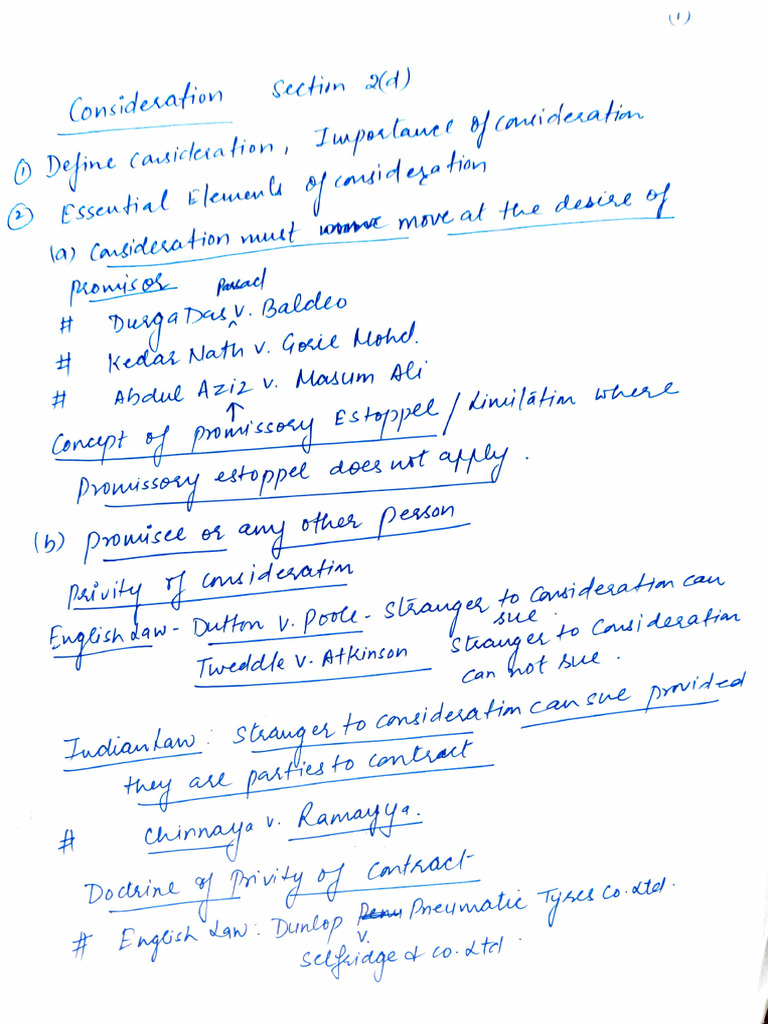 (1)
Consideration Section 2(d)
① Define consideration, Importance of consideration
② Essential Elements of consideration
(a) Consideration must move at the desire of
promisor
# Durga Das Parsad v. Baldeo
# Kedar Nath v. Gorie Mohd.
# Abdul Aziz v. Masum Ali
↑
Concept of promissory Estoppel / Limitation where
Promissory estoppel does not apply.
(b) Promisee or any other person
Privity of consideration
English Law - Dutton v. Poole - Stranger to consideration can
sue.
Tweddle v. Atkinson Stranger to consideration
can not sue.
Indian Law: Stranger to consideration can sue provided
they are parties to contract
# Chinnaya v. Ramayya.
Doctrine of Privity of Contract
# English Law: Dunlop Pneumatic Tyres Co. Ltd.
v.
Selfridge & co. Ltd.